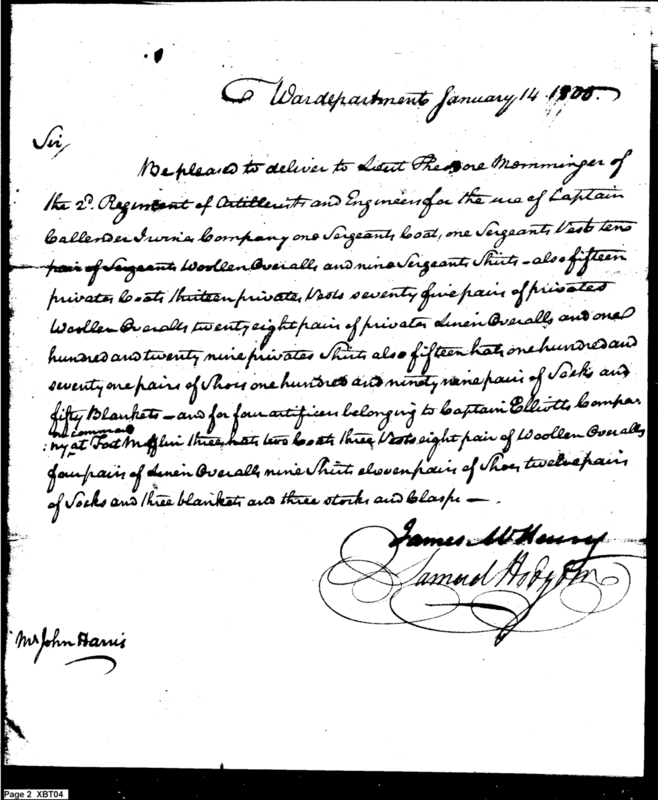 War department January 14 1800.
Sir,
Be pleased to deliver to Lieut Theodore Memminger of
the 2d. Regiment of Artillerists and Engineers for the use of Captain
Callender Irvine's Company one Sergeants Coat, one Sergeants Vest ten
pair of Sergeants Woollen Overalls and nine Sergeants Shirts – also fifteen
privates Coats thirteen privates Vests seventy five pairs of privates
Woollen Overalls twenty eight pairs of privates Linen Overalls and one
hundred and twenty nine privates Shirts also fifteen hats one hundred and
seventy one pairs of Shoes one hundred and ninety nine pairs of Socks and
fifty Blankets – and for four artificers belonging to Captain Elliotts Compa
on command
:ny at Fort Mifflin three hats two Coats three Vests eight pair of Woollen Overalls
four pairs of Linen Overalls nine Shirts eleven pairs of Shoes twelve pairs
of Socks and three blankets and three stocks and Clasps –
James McHenry
Samuel Hodgdon
Mr John Harris
Page 2 XBT04